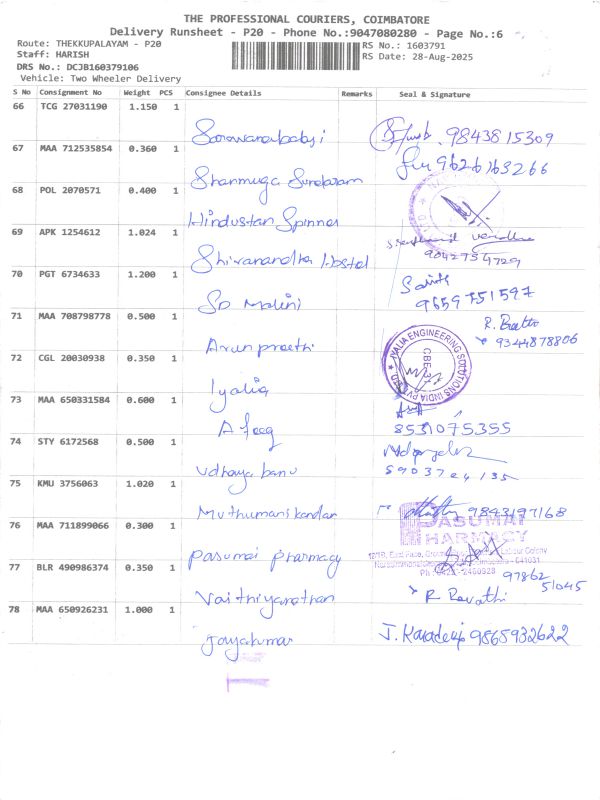 THE PROFESSIONAL COURIERS, COIMBATORE
Delivery Runsheet - P20 - Phone No.:9047080280 - Page No.:6
Route: THEKKUPALAYAM - P20
RS No.: 1603791
Staff: HARISH
RS Date: 28-Aug-2025
DRS No.: DCJB160379106
Vehicle: Two Wheeler Delivery
S No Consignment No Weight PCS Consignee Details Remarks Seal & Signature
66 TCG 27031190 1.150 1
Saravanababji 9843815309
67 MAA 712535854 0.360 1
Shanmuga Sundaram 9626163266
68 POL 2070571 0.400 1
Hindustan Spinner
69 APK 1254612 1.024 1
Shivanandha Hostel 9042754729
70 PGT 6734633 1.200 1
SD Malini 9659751597
71 MAA 708798778 0.500 1
R.
Arun preethi 9344878806
72 CGL 20030938 0.350 1
IYALIA ENGINEERING SOLUTIONS INDIA PVT LTD
CBE-
Iyalia
73 MAA 650331584 0.600 1
Afeeq 8531075355
74 STY 6172568 0.500 1
Udhaya banu
75 KMU 3756063 1.020 1
Muthumanikandan 9843197168
76 MAA 711899066 0.300 1
PASUMAI
PHARMACY
Pasumai pharmacy
77 BLR 490986374 0.350 1
97862
51045
Vaithiyanathan R Revathi
78 MAA 650926231 1.000 1
Jayakumar J. 9865932622